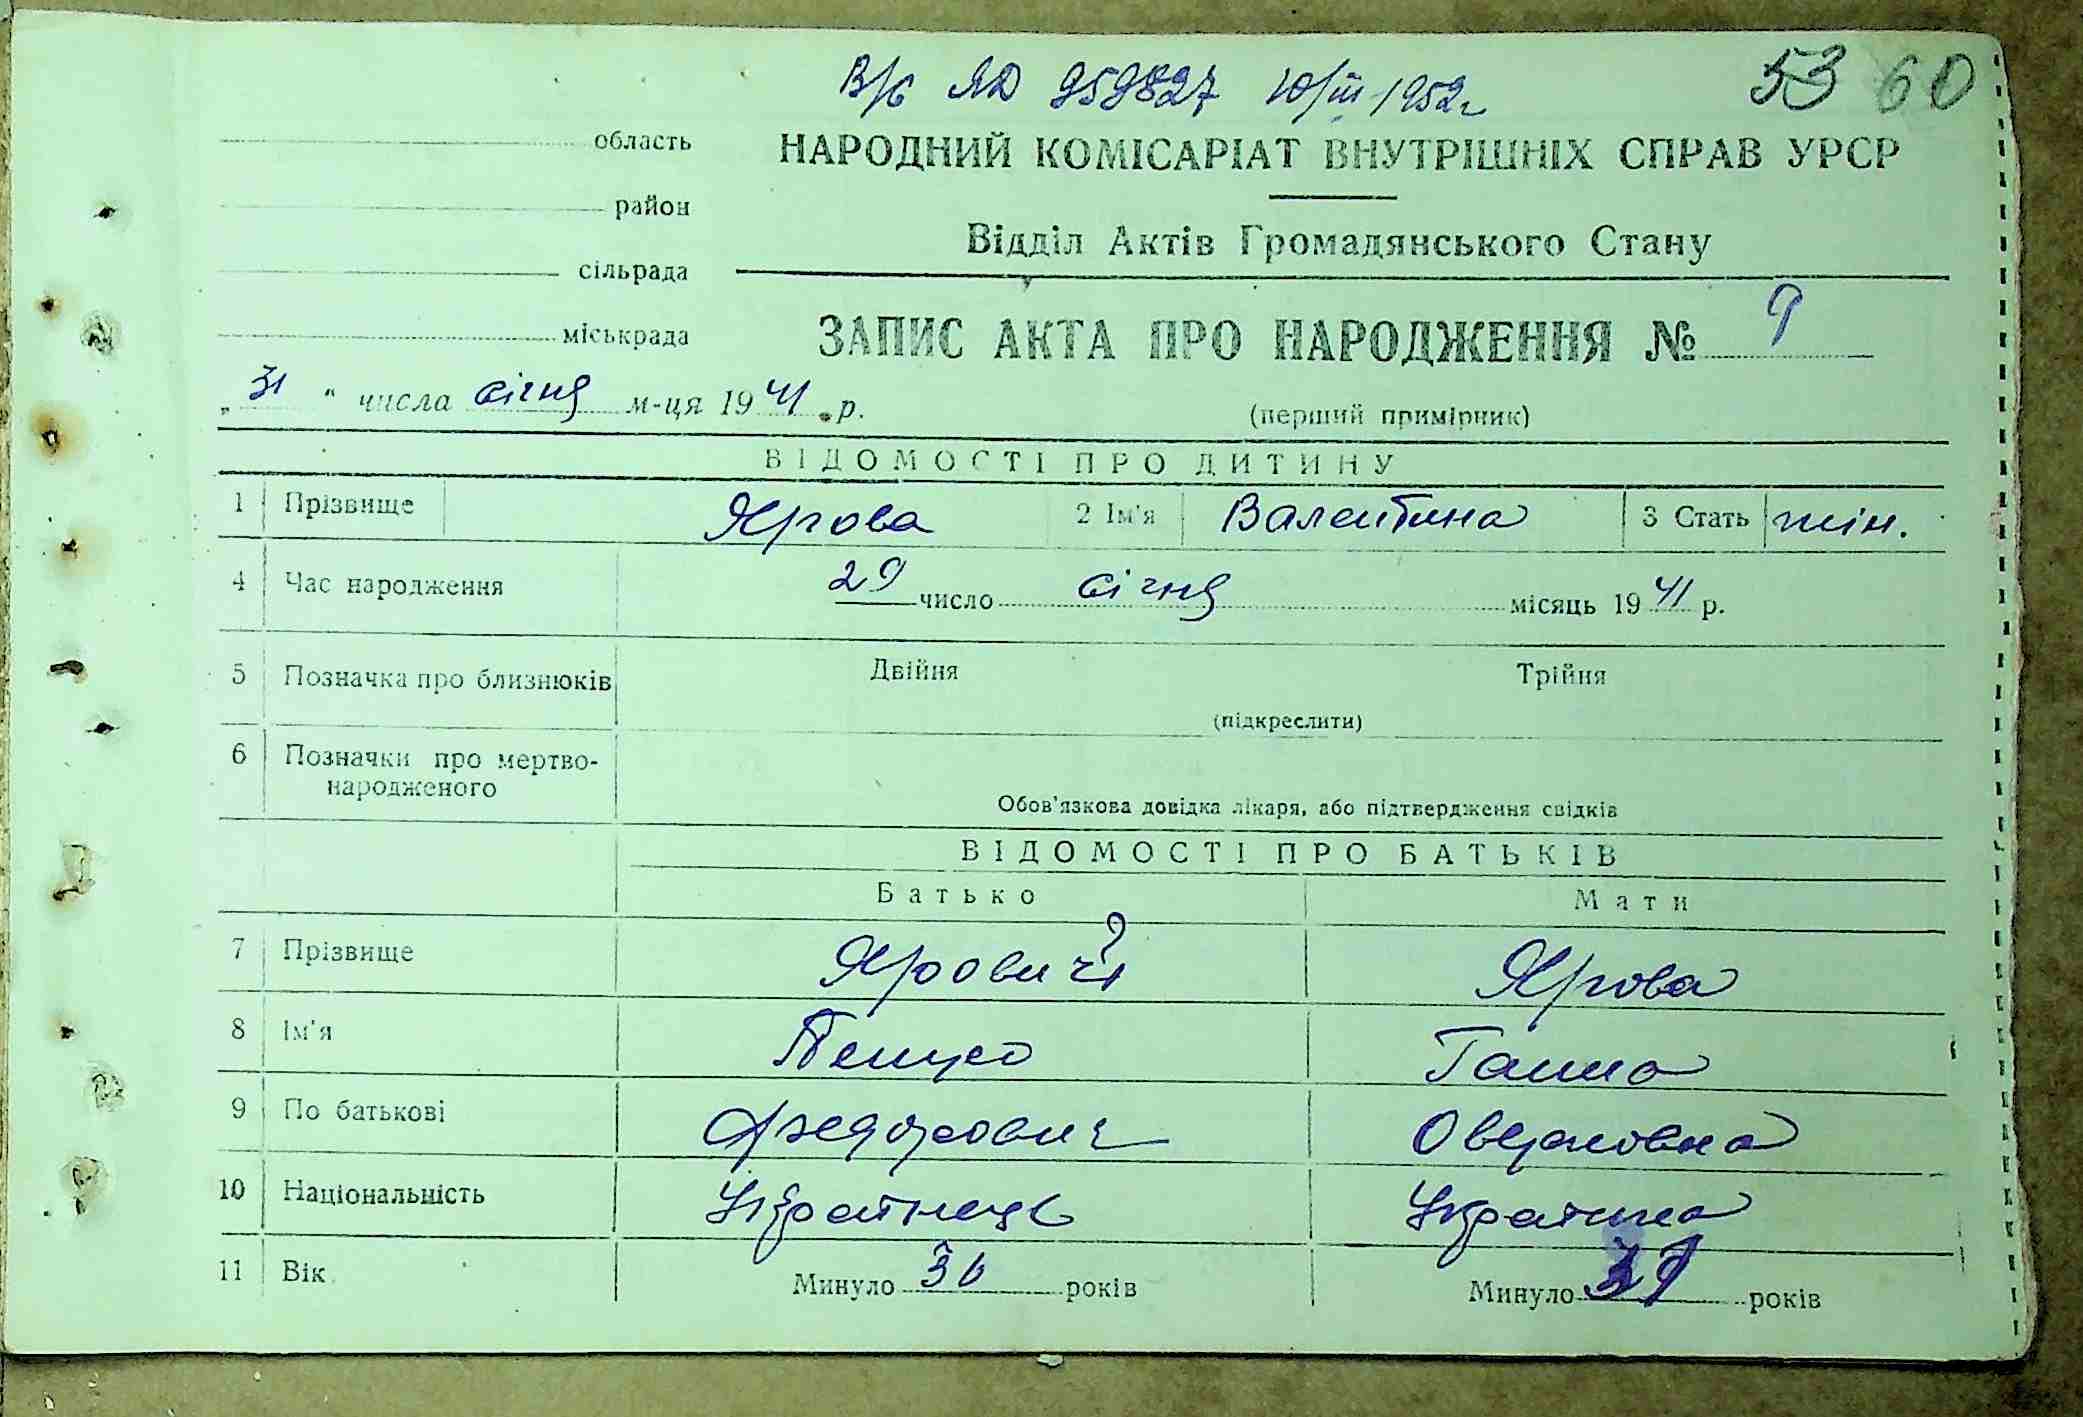 В/с ЯД 959827 10/III-1952г
53 60
область
район
сільрада
міськрада
НАРОДНИЙ КОМІСАРІАТ ВНУТРІШНІХ СПРАВ УРСР
Відділ Актів Громадянського Стану
ЗАПИС АКТА ПРО НАРОДЖЕННЯ № 9
„31" числа січня м-ця 1941 р.
(перший примірник)
ВІДОМОСТІ ПРО ДИТИНУ
1 Прізвище Ярова 2 Ім'я Валентина 3 Стать жін.
4 Час народження 29 число січня місяць 1941 р.
5 Позначка про близнюків Двійня Трійня
(підкреслити)
6 Позначки про мертво-
народженого
Обов'язкова довідка лікаря, або підтвердження свідків
ВІДОМОСТІ ПРО БАТЬКІВ
Батько Мати
7 Прізвище Яровий Ярова
8 Ім'я Ганна
9 По батькові Федорович
10 Національність Українець Українка
11 Вік Минуло 36 років Минуло років